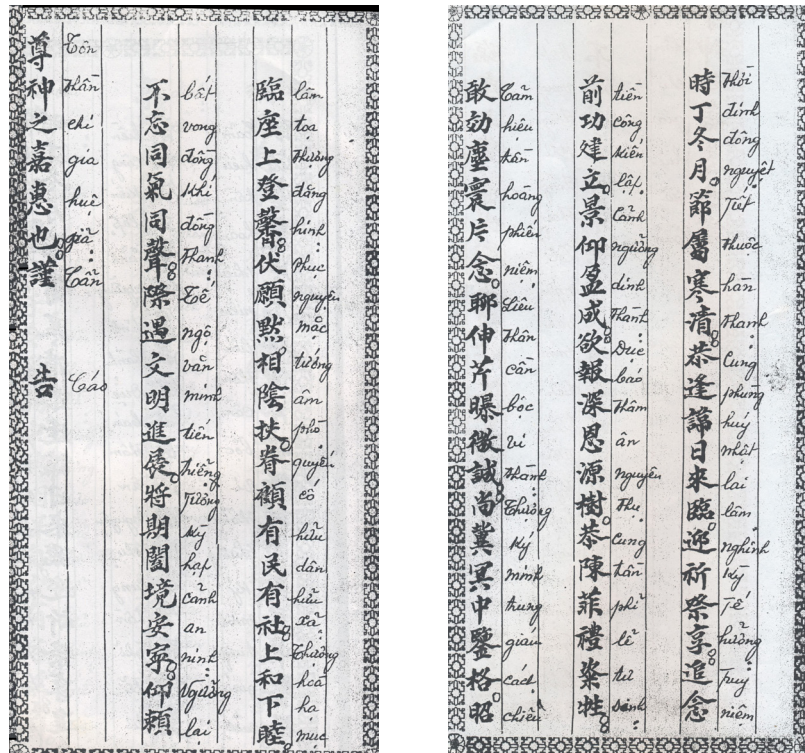 時丁冬月節屬寒清恭逢諱日來臨迎祈祭享追念
Thời đinh đông nguyệt Tiết thuộc hàn thanh Cung phùng huý nhật lai lâm nghinh kỳ Tế hưởng Truy niệm
前功建立景仰盈成欲報深恩源樹恭陳菲禮粢牲
tiền công kiến lập Cảnh ngưỡng dinh thành Dục báo thâm ân nguyên thụ Cung tần phỉ lễ tư sinh
敢効塵寰片念聊伸芹曝微誠尚冀冥中鑒格昭
Cảm hiệu tần hoàng phiến niệm Liêu thân cần bộc vi thành Thượng ký minh trung giám cách chiêu
臨座上登馨伏願默相陰扶眷顧有民有社上和下睦
lâm toạ thượng đăng hinh Phục nguyện mặc tướng âm phò quyến cố hữu dân hữu xã Thượng hoà hạ mục
不忘同氣同聲際遇文明進展將期闔境安寧仰賴
bất vong đồng khí đồng thanh Tế ngộ văn minh tiến triễng Tương kỳ hạp cảnh an ninh Ngưỡng lai
尊神之嘉惠也謹 告
Tôn thần chi gia huệ giã Cẩn Cáo